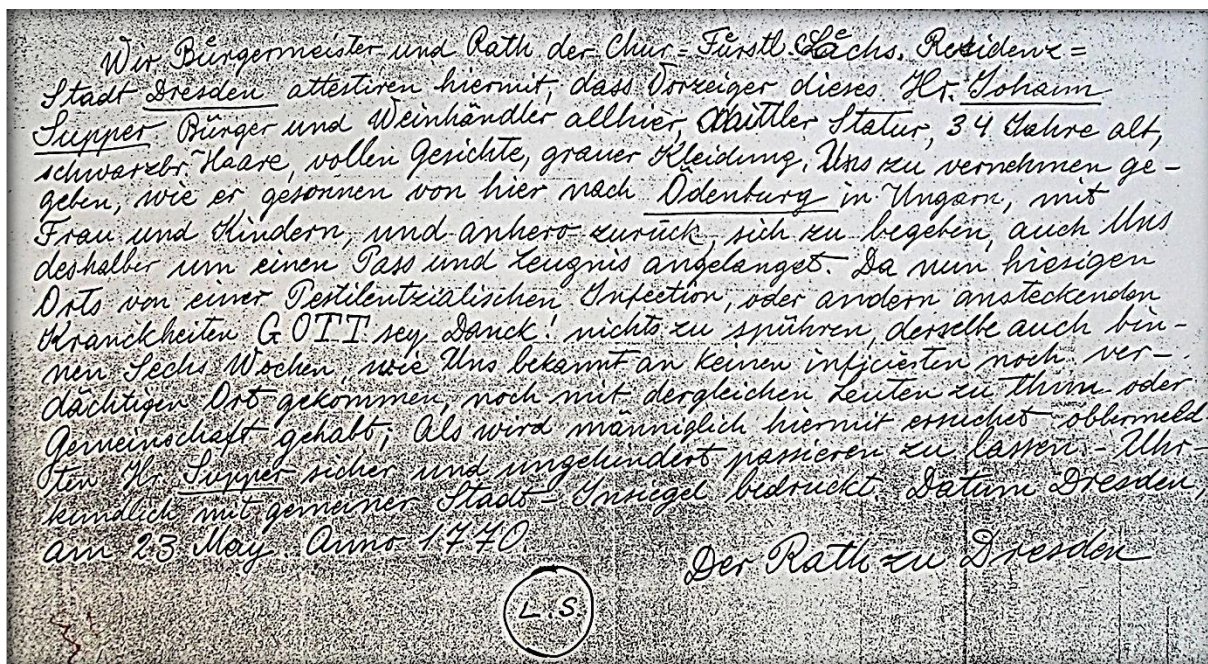 Wir Bürgermeister und Rath der Chur= Fürstl. Sächs. Residenz=
Stadt Dresden attestiren hiermit, dass Vorzeiger dieses Hr. Johann
Supper Bürger und Weinhändler allhier, Mittler Statur, 34 Jahre alt,
schwarzbr. Haare, vollen Gesichte, grauer Kleidung, Uns zu vernehmen ge-
geben, wie er gesonnen von hier nach Ödenburg in Ungarn, mit
Frau und Kindern, und anhero zurück, sich zu begeben, auch Uns
deshalber um einen Pass und Zeugnis angelanget. Da nun hiesigen
Orts von einer Pestilentzialischen Infection, oder andern ansteckenden
Kranckheiten GOTT sey Danck! nichts zu spühren, derselbe auch bin-
nen Sechs Wochen, wie Uns bekannt an keinen inficierten noch ver-
dächtigen Ort gekommen, noch mit dergleichen Leuten zu thun oder
Gemeinschaft gehabt; Als wird männiglich hiermit ersuchet obbermeld
ten Hr. Supper sicher und ungehindert passieren zu lassen.- Uhr-
kundlich mit gemeiner Stadt-Insiegel bedruckt. Datum Dresden,
am 23. May. Anno 1770.
Der Rath zu Dresden
L.S.